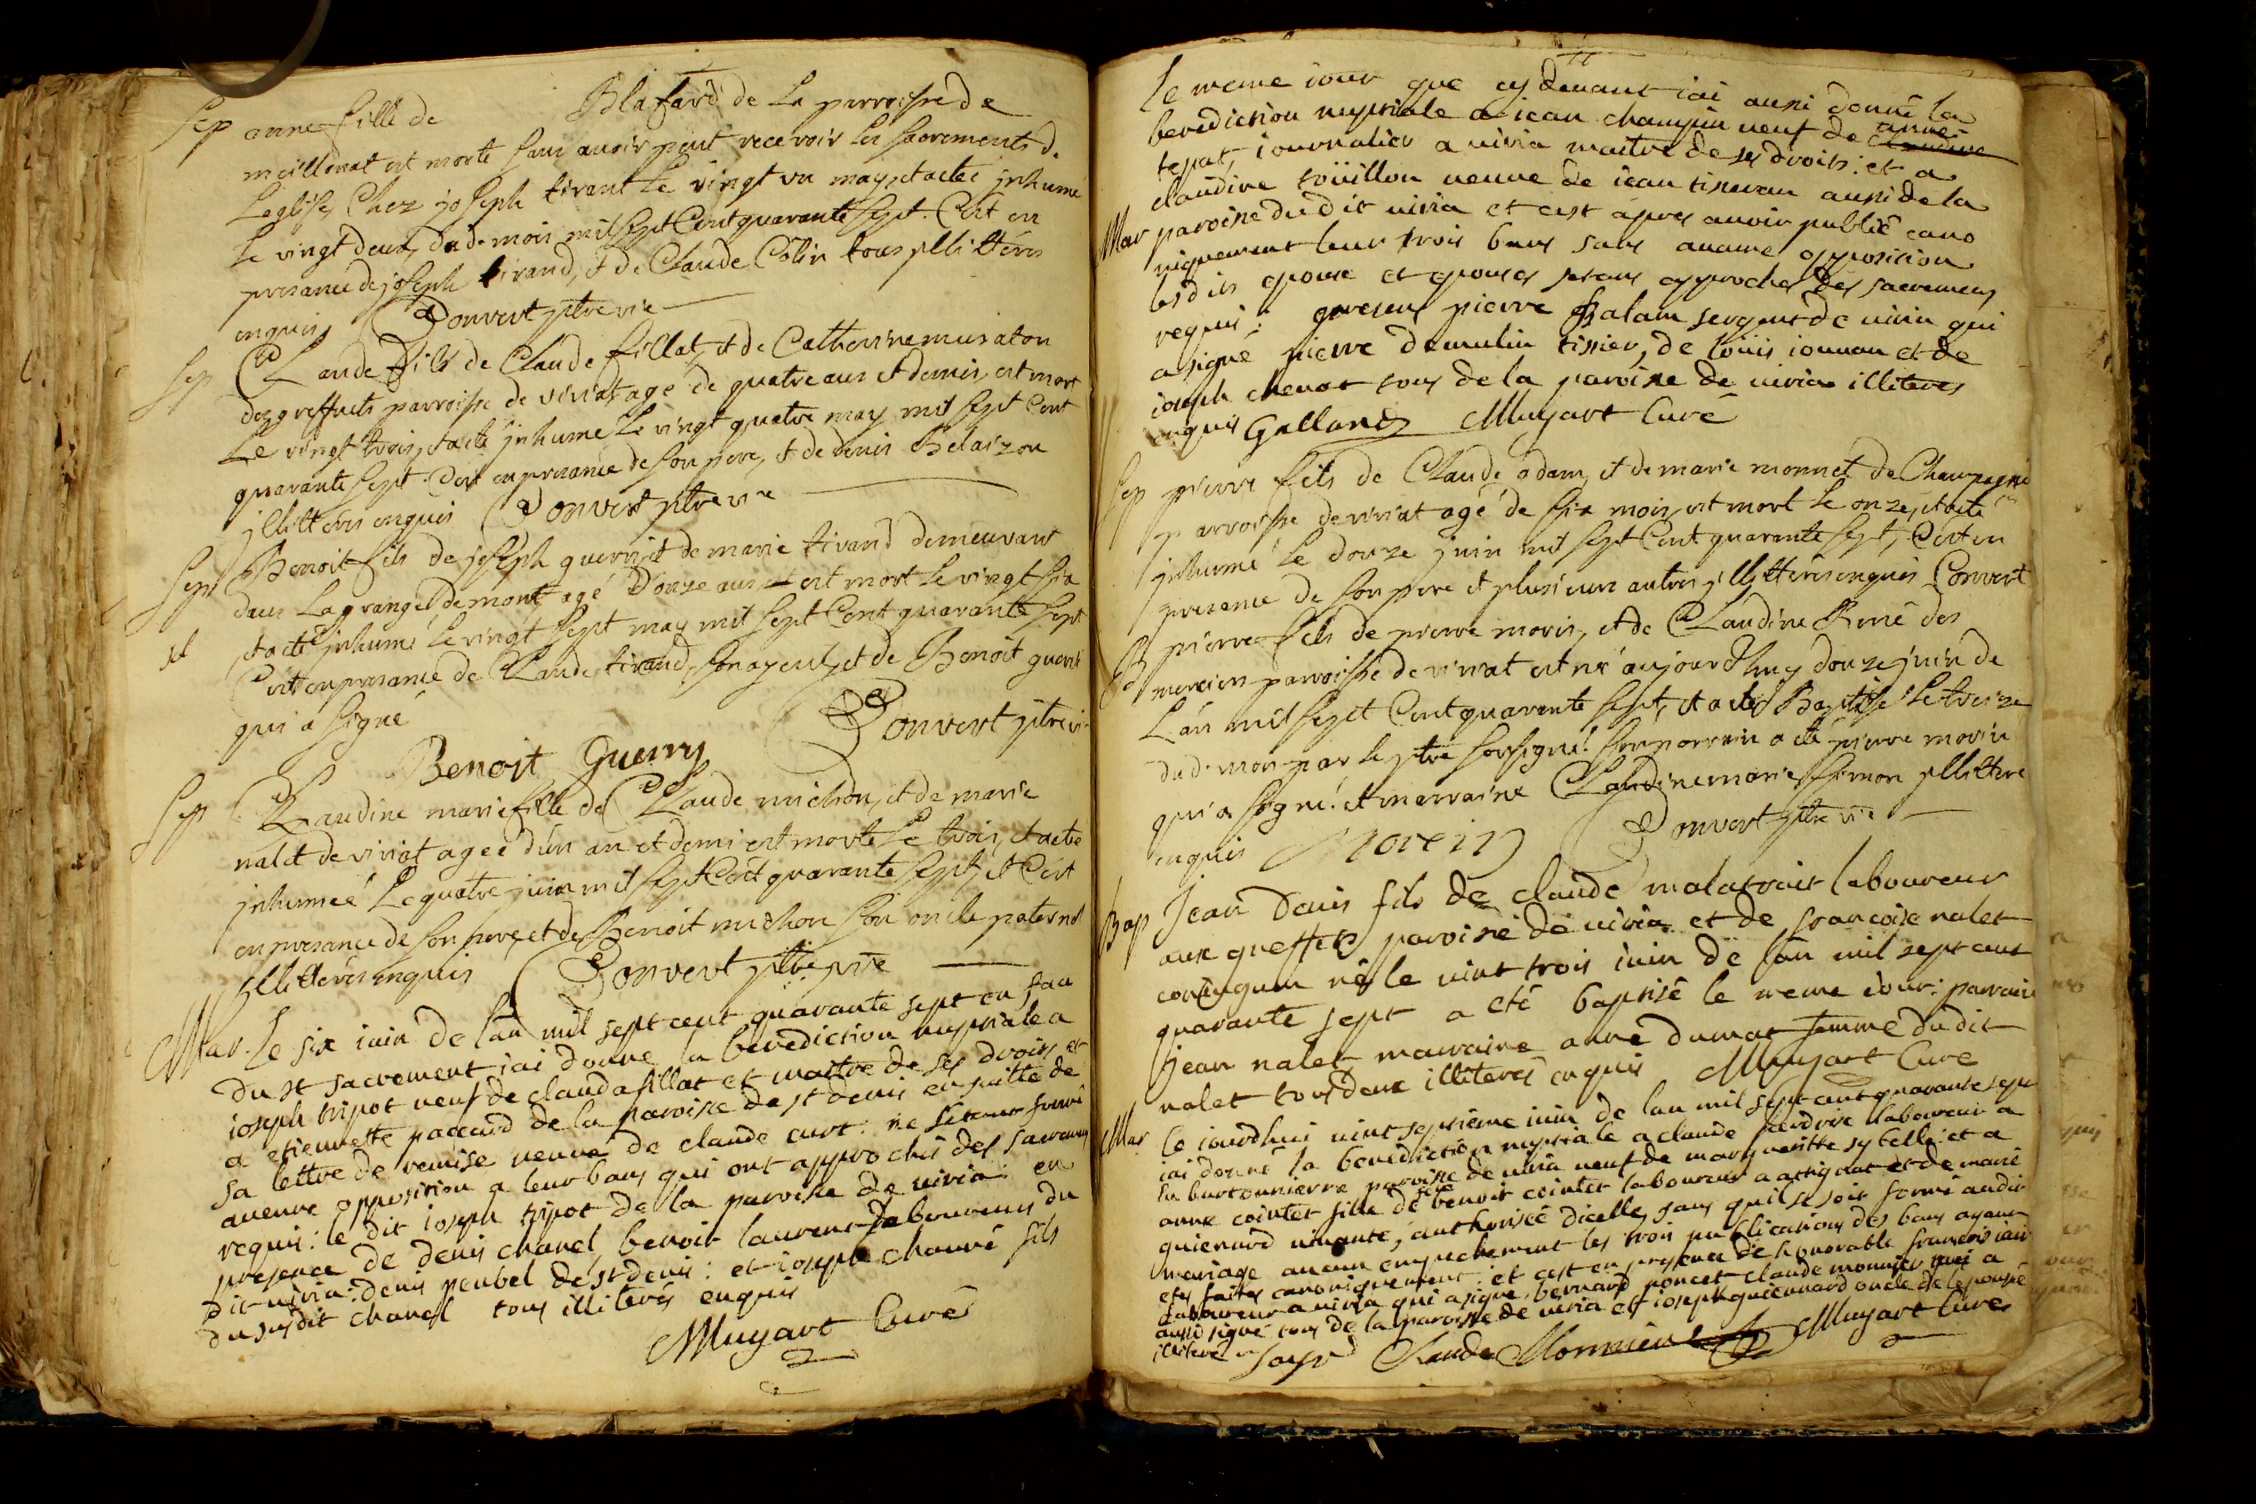 Sep anne fille de Blafard de la parroisse de
meillonat est morte sans avoir peut recevoir les sacrements d.
Leglise, Chez joseph tirant le vingt un may, et a eté inhumé
le vingt deux dud. mois mil sept Cent quarante sept. C'est en
presance de joseph tirand, et de Claude Colin tous illitterés
enquis Convert ptre vic
Sep Claude fils de Claude fillat, et de Catherine muraton
des greffuets parroisse de viriat agé de quatre ans et demis est mort
Le vingt trois, et a eté inhumé le vingt quatre may mil sept Cent
quarante sept. C'est en presance de son pere, et de denis Belaizon
illitterés enquis Convert ptre vic
Sep Benoit fils de joseph guerrit et de marie tirand demeurant
dans La grange de mont agé d'onze ans et est mort le vingt six
et a eté inhumé le vingt sept may mil sept Cent quarante sept
C'est en presance de Claude tirand, son ayeul, et de Benoit guerri
qui a signé Convert ptre vi
Benoit Guerry
Sep Claudine marie fille de Claude michon, et de marie
nalet de viriat agée d'un an et demi est morte le trois, et a eté
inhumée Le quatre juin mil sept Cent quarante sept, et C'est
en presance de son pere, et de Benoit michon son oncle paternel
illitterés enquis Convert ptre vic
Mar. Le six iuin de lan mil sept cent quarante sept en
du st sacrement iai donné la benediction nuptiale a
ioseph tripot veuf de clauda fillat et maitre de ses droits et
a etiennette paccard de la paroisse de st denis en suitte de
sa lettre de remise veuve de claude curt: ne sitant formé
aucune opposition a leur bans qui ont approchés des sacremens
requis: le dit ioseph tripot de la paroisse de viria: en
presence de denis chanel, benoit laurent laboureurs du
dit viria: denis peubel de st denis: et ioseph chanré fils
du susdit chanel tous illiterés enquis
Muyart Curé
le meme iour que cy devant iai aussi donné la
benediction nuptiale a iean champin veuf de anne
tepat, iournalier a viria maitre de ses droits: et a
claudine roüillon veuve de iean tisseran aussi de la
Mar paroisse du dit viria et cest apres avoir publié cano
niquement leur trois bans sans aucune opposition
lesdits epoux et epouses setans approchés des sacremens
requis: presens pierre halam sergent de viria qui
a signé pierre demulin tissier, de loüis iounon et de
ioseph chenat tous de la paroisse de viria illiteres
enquis Galland Muyart Curé
Sep pierre fils de Claude adam, et de marie monnet de Champagne
parroisse de viriat agé de six mois, est mort le onze, et a eté
inhumé le douze juin mil sept Cent quarante sept, C'est en
presance de son pere et plusieurs autres illitterés enquis Convert
B pierre fils de pierre morin, et de Claudine René des
merciers parroisse de viriat est né aujourd'huy douze juin de
L'an mil sept Cent quarante sept, et a eté Baptisé le treize
dud. mois par le ptre soussigné. son parrain a eté pierre morin
qui a signé. et marraine Claudine marie simon illittere
enquis Morein Convert ptre vic
Bap Jean denis fils de claude malatrait laboureur
aux greffets paroisse de viria et de francoise nalet
coniugum né le vint trois iuin de lan mil sept cent
quarante sept a eté baptisé le meme iour: parrain
jean nalet marraine anne dumas femme du dit
nalet tous deux illiterés enquis Muyart Curé
Mar ce iourdhui vint septieme iuin de lan mil sept cent quarante sept
iai donné la benediction nuptiale a claude perdrix laboureur a
la burtonnierre paroisse de viria veuf de marguerite sybelle: et a
anne cointet fille de feu benoit cointet laboureur a attignat et de marie
quienard vivante, authorisée dicelle, sans quil se soit formé audit
mariage aucun empechement les trois publications des bans ayant
etes faites canoniquement: et cest en presence de honorable francois iair
laboureur a viria qui a signé, bernard poncet claude monnier qui a
aussi signé tous de la paroisse de viria et ioseph quiennard oncle de lepouse
illiteré Claude Monnier Muyart Curé